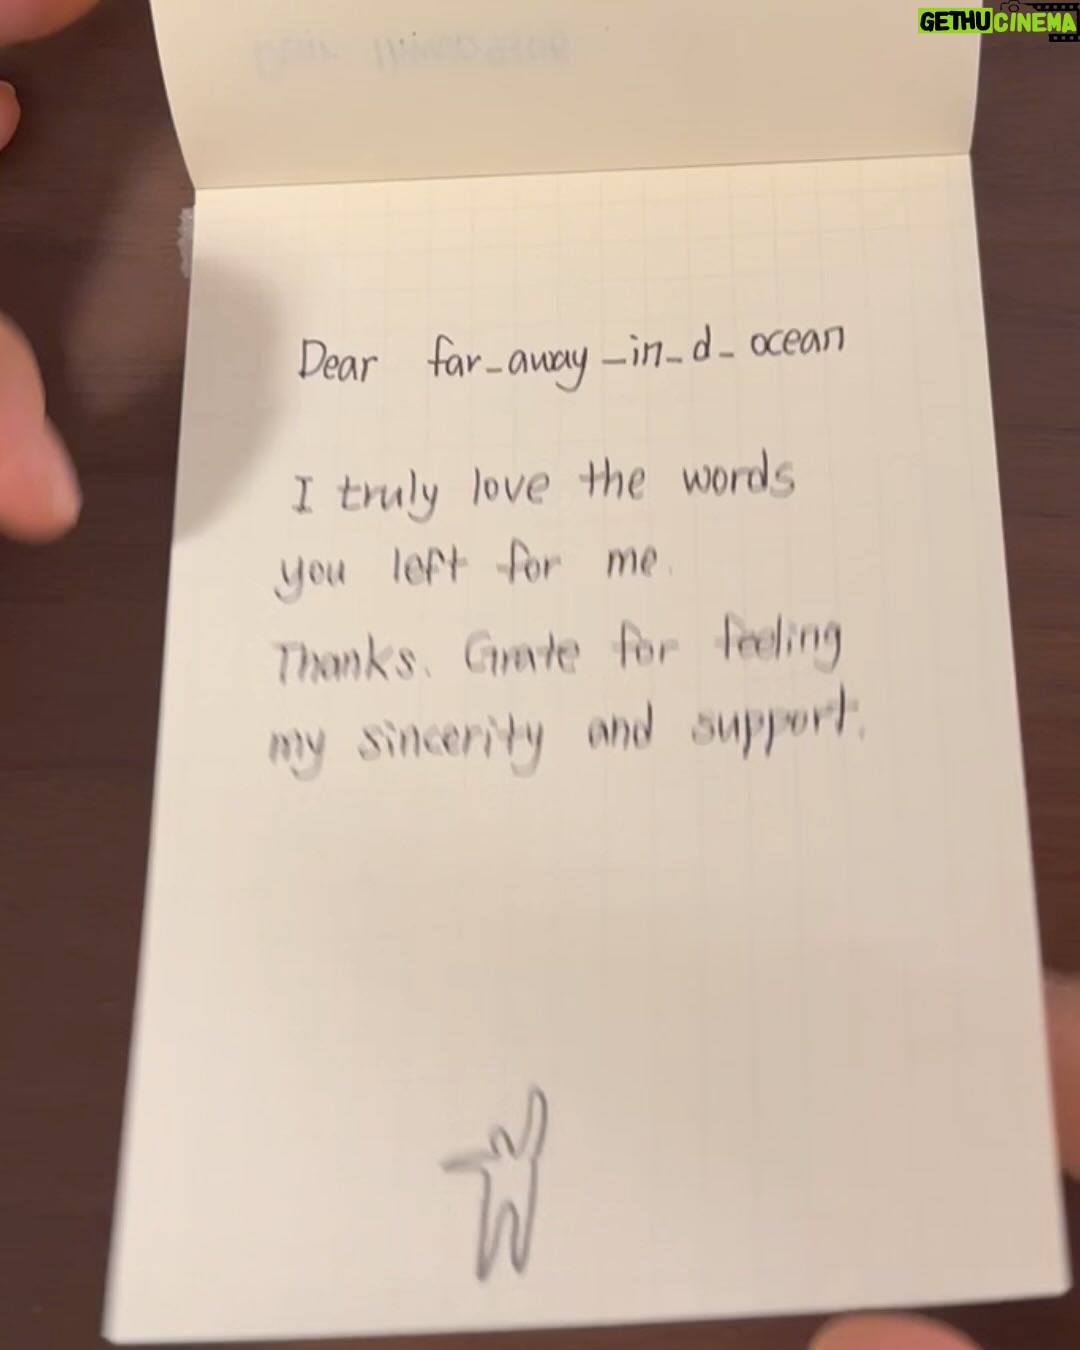 GETHUCINEMA
Dear far_away_in_d_ocean
I truly love the words
you left for me.
Thanks. Grate for feeling
my sincerity and support.